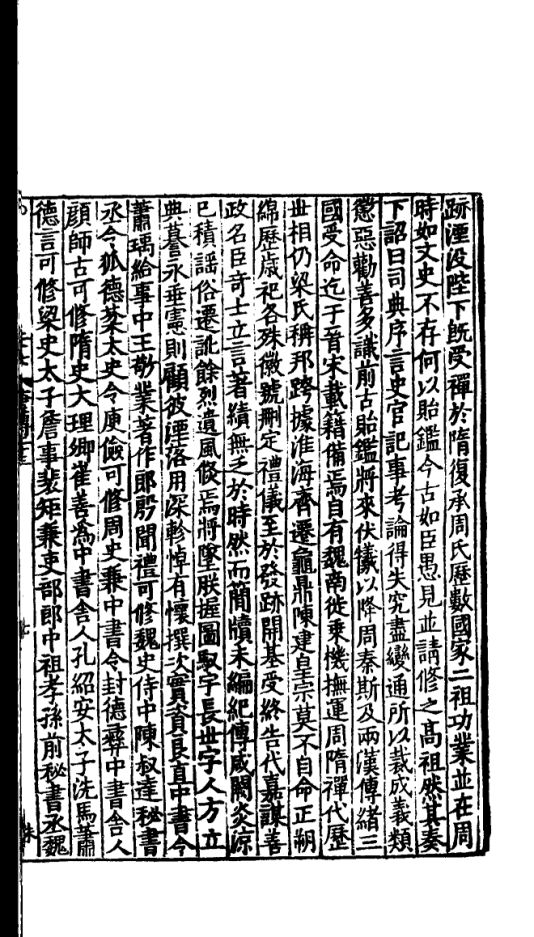 跡湮没陛下既受禪於隋復承周氏歷數國家二祖功業並在周
時如文史不存何以貽鑑今古如臣愚見並請修之高祖然其奏
下詔曰司典序言史官記事考論得失究盡變通所以裁成義類
懲惡勸善多識前古貽鑑將來伏犧以降周秦斯及兩漢傳緒三
國受命迄于晉宋載籍備焉自有魏南徙乗機撫運周隋禪代歷
世相仍梁氏稱邦跨據淮海齊遷龜鼎陳建皇宗莫不自命正朔
綿歷歲祀各殊徽號刪定禮儀至於發跡開基受終告代嘉謀善
政名臣奇士立言著績無乏於時然而簡牘未編紀傳咸闕炎凉
已積謡俗遷訛餘烈遺風倐焉將墜朕握圖馭宇長世字人方立
典謩永垂憲則顧彼湮落用深軫悼有懷撰次實資良直中書令
蕭瑀給事中王敬業著作郎殷聞禮可修魏史侍中陳叔達秘書
丞令狐德棻太史令庾儉可修周史兼中書令封德彝中書舎人
顔師古可修隋史大理卿崔善爲中書舎人孔紹安太子洗馬蕭
德言可修梁史太子詹事裴矩兼吏部郎中祖孝孫前秘書丞魏